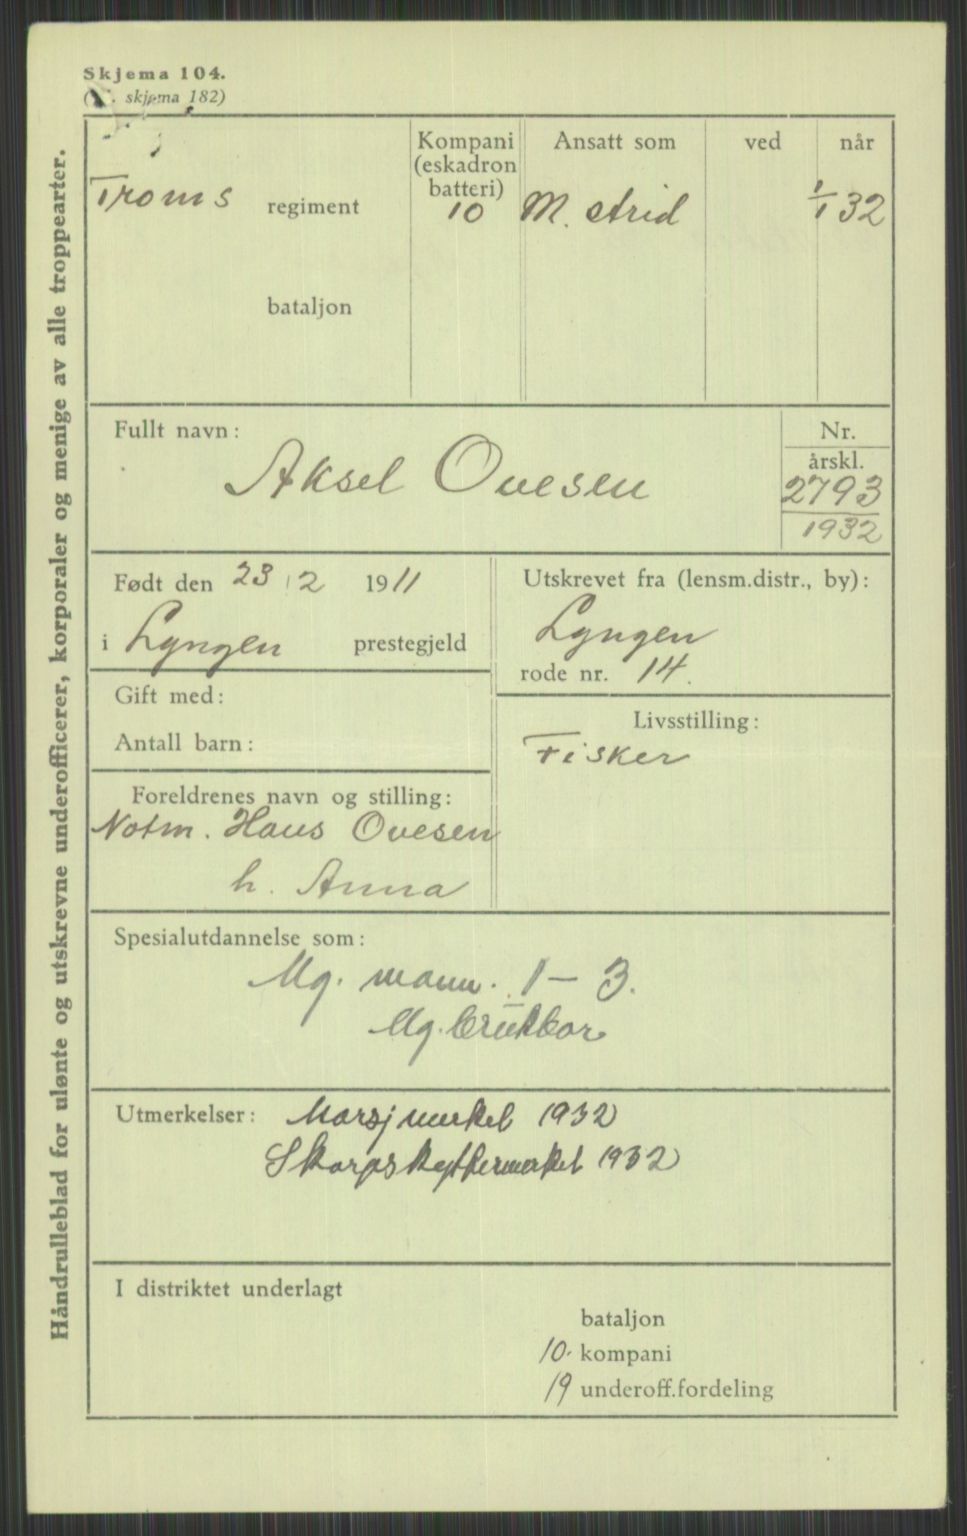 Skjema 104.
skjema 182)
Håndrulleblad for ulønte og utskrevne underofficerer, korporaler og menige av alle troppearter.
Kompani (eskadron batteri)
Ansatt som
ved
når
Troms regiment
10
M. strid
1/1 32
bataljon
Fullt navn:
Aksel Ovesen
Nr.
årskl.
2793
1932
Født den 23/2 1911
i Lyngen prestegjeld
Utskrevet fra (lensm.distr., by):
Lyngen
rode nr. 14.
Gift med:
Antall barn:
Livsstilling:
Fisker
Foreldrenes navn og stilling:
Notm. Hans Ovesen
h. Anna
Spesialutdannelse som:
Mg. mann. 1 - 3.
Mg.
Utmerkelser: Marsjmerket 1932
Skarpskyttermerket 1932
I distriktet underlagt
bataljon
10. kompani
19 underoff.fordeling